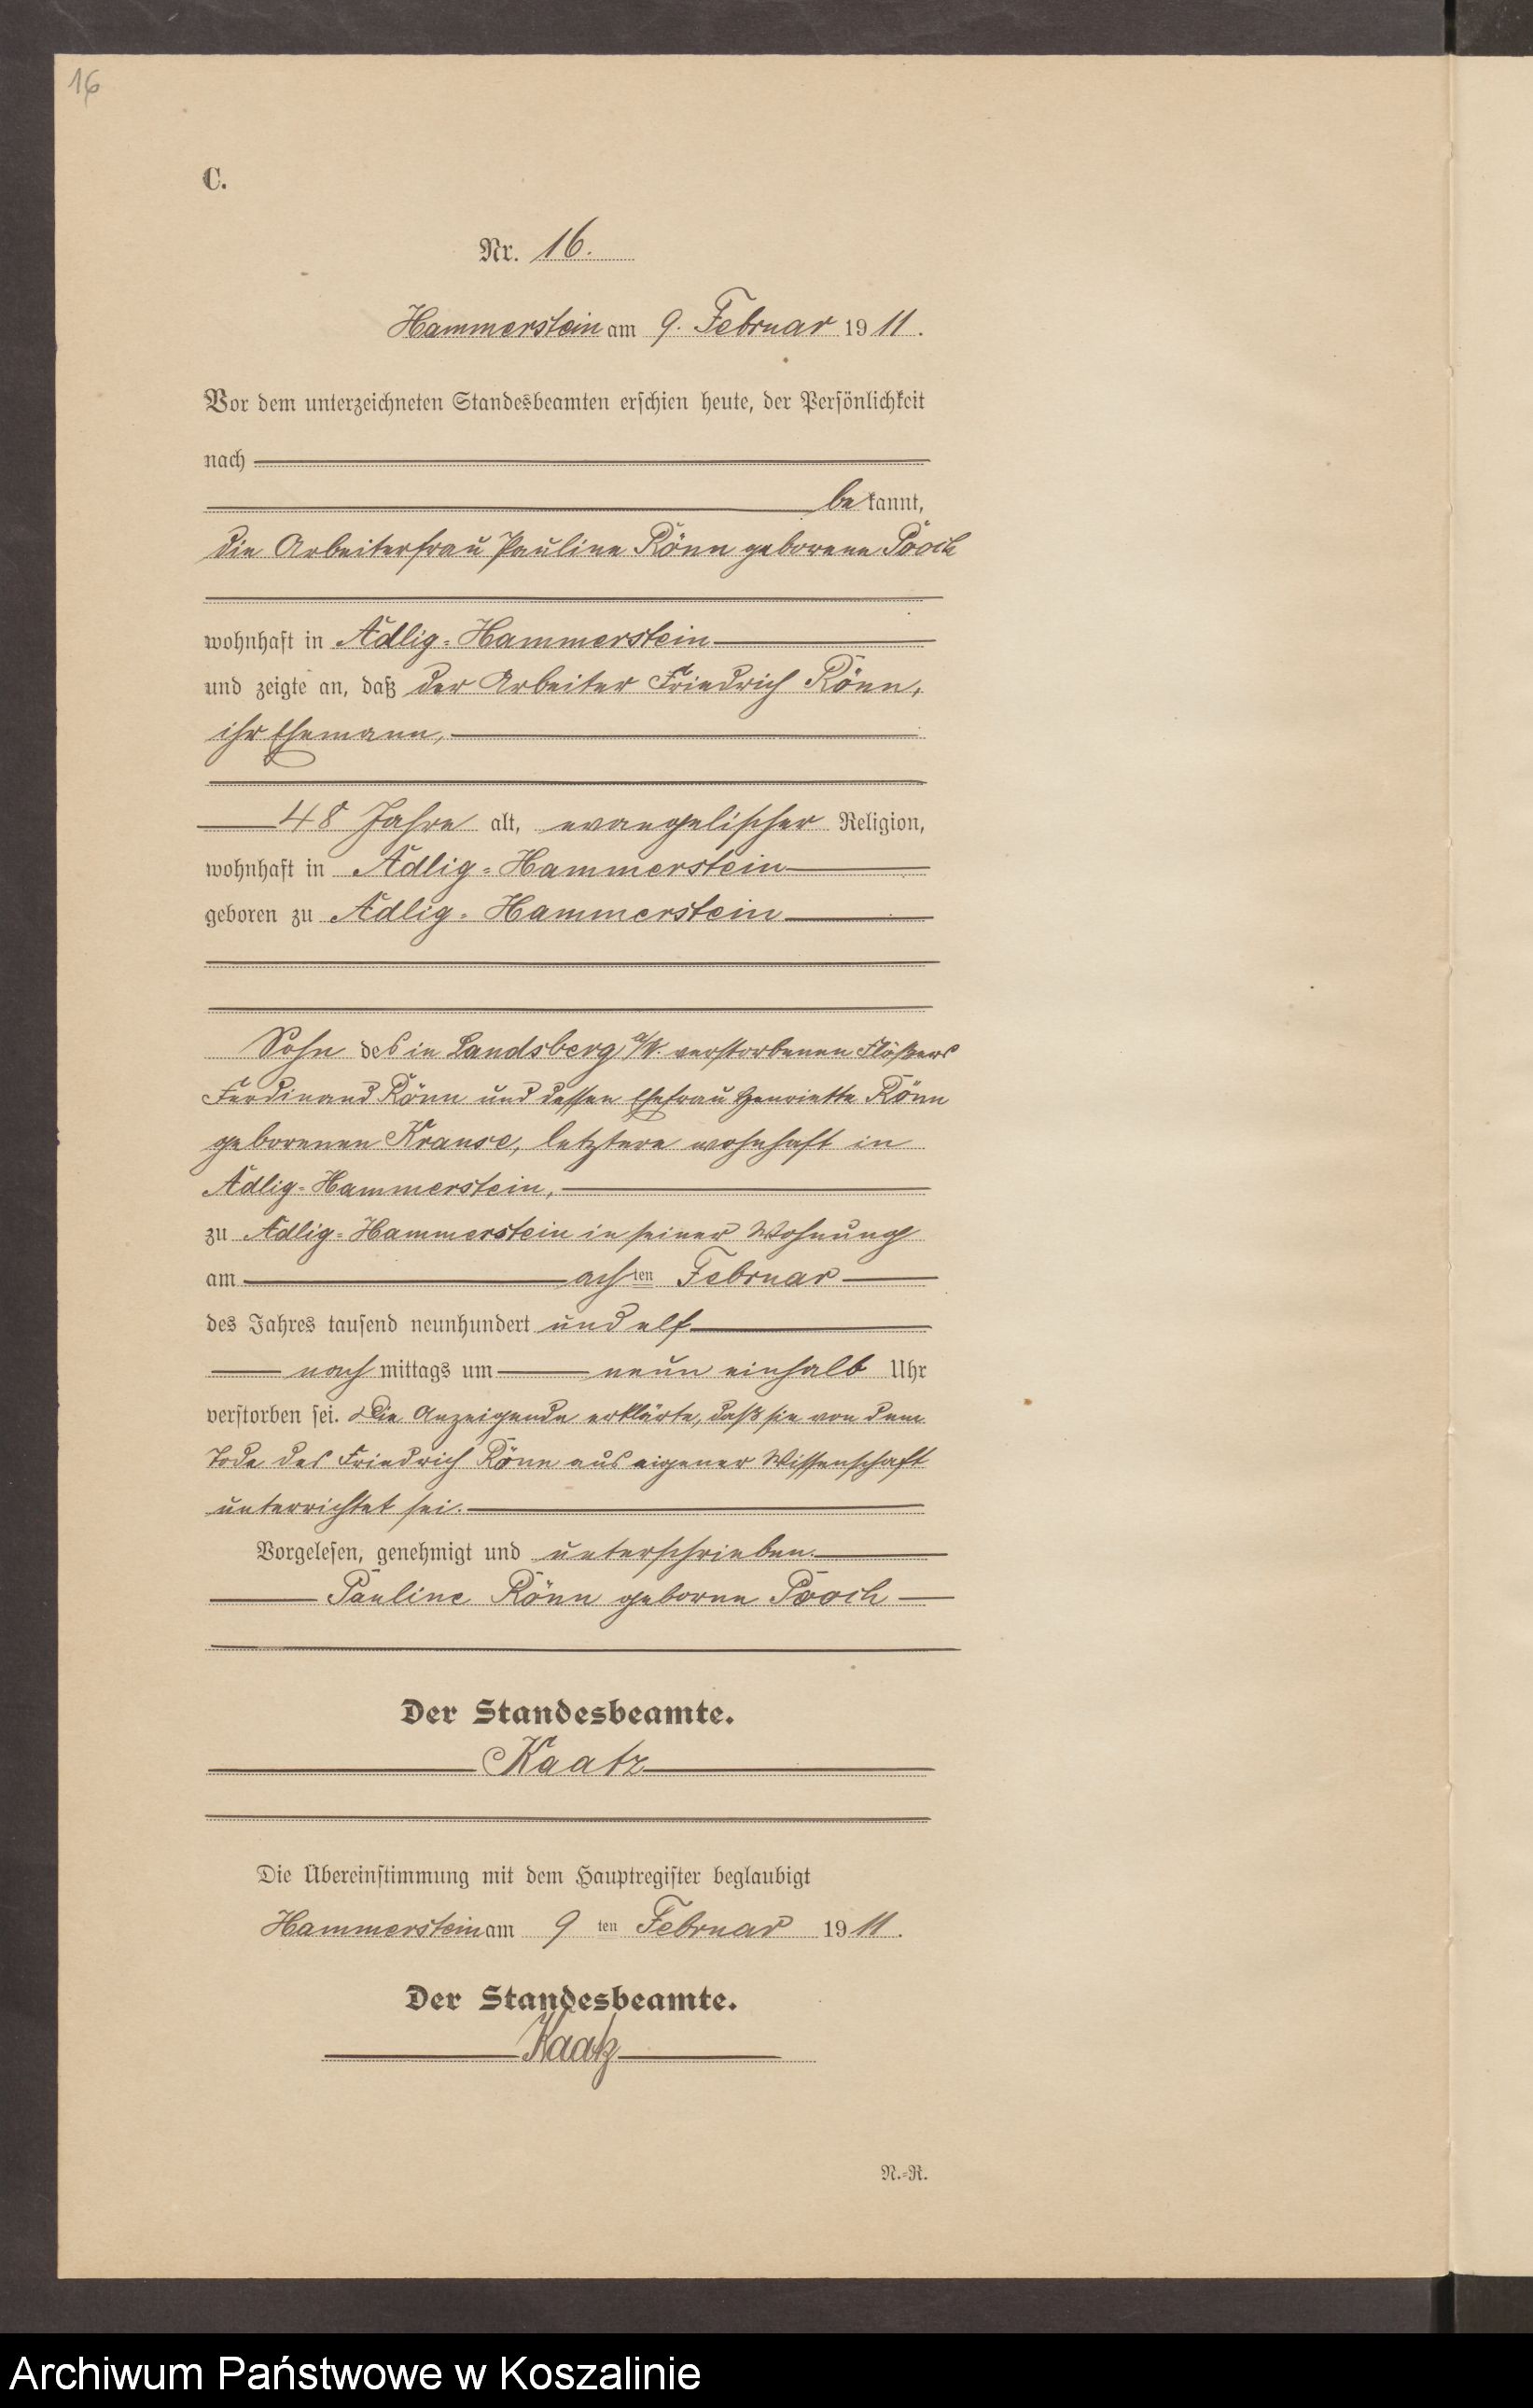 16
C.
Nr. 16.
Hammerstein am 9. Februar 1911.
Vor dem unterzeichneten Standesbeamten erschien heute, der Persönlichkeit
nach
bekannt,
die Arbeiterfrau Pauline Rönn geborene Pooch
wohnhaft in Adlig-Hammerstein
und zeigte an, daß der Arbeiter Friedrich Rönn,
ihr Ehemann,
48 Jahre alt, evangelischer Religion,
wohnhaft in Adlig-Hammerstein
geboren zu Adlig-Hammerstein
Sohn des in Landsberg a/W. verstorbenen Flößers
Ferdinand Rönn und dessen Ehefrau Henriette Rönn
geborenen Krause, letztere wohnhaft in
Adlig-Hammerstein,
zu Adlig-Hammerstein in seiner Wohnung
am achten Februar
des Jahres tausend neunhundert und elf
nachmittags um neun einhalb Uhr
verstorben sei. Die Anzeigende erklärte, daß sie von dem
Tode des Friedrich Rönn aus eigener Wissenschaft
unterrichtet sei.
Vorgelesen, genehmigt und unterschrieben.
Pauline Rönn geborne Pooch
Der Standesbeamte.
Kaatz
Die Übereinstimmung mit dem Hauptregister beglaubigt
Hammerstein am 9ten Februar 1911.
Der Standesbeamte.
Kaatz
N.-R.
Archiwum Państwowe w Koszalinie